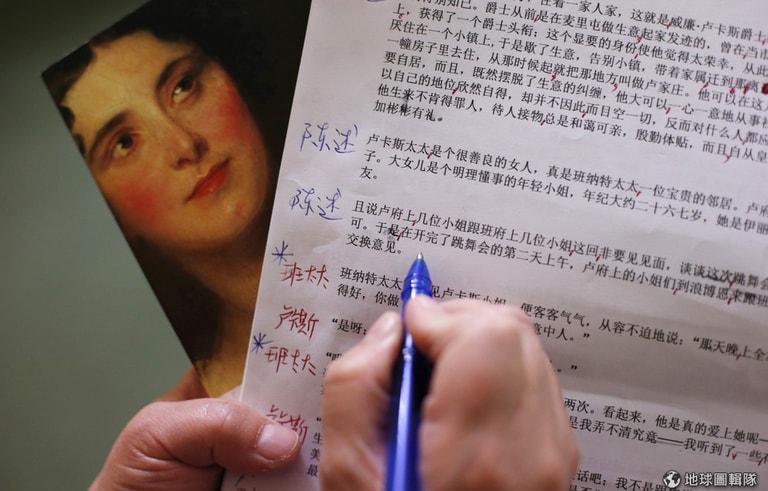 特别知己。爵士从前是在麦里屯做生意起家发迹的，曾在当市
上，获得了一个爵士头衔；这个显要的身份使他觉得太荣幸，从此
厌住在一个小镇上，于是歇了生意，告别小镇，带着家属迁到那离
一幢房子里去住，从那时候起就把那地方叫做卢家庄。他可以在这
要自居，而且，既然摆脱了生意的纠缠，他大可以一心一意地从事社
以自己的地位欣然自得，却并不因此而目空一切，反而对什么人都应
他生来不肯得罪人，待人接物总是和蔼可亲，殷勤体贴，而且自从皇
加彬彬有礼。
陈述
卢卡斯太太是个很善良的女人，真是班纳特太太一位宝贵的邻居。卢府
子。大女儿是个明理懂事的年轻小姐，年纪大约二十六七岁，她是伊丽
友。
陈述
且说卢府上几位小姐跟班府上几位小姐这回非要见见面，谈谈这次跳舞会
可。于是在开完了跳舞会的第二天上午，卢府上的小姐们到浪博恩来跟班
交换意见。
*班太太
班纳特太太 见卢卡斯小姐，便客客气气，从容不迫地说：“那天晚上全
得好，你做
卢卡斯
“是呀； 意中人。”
*班太太
卢卡斯
两次。看起来，他是真的爱上她呢
是我弄不清究竟——我听到了一些
话吧；我不是跟
地球圖輯隊